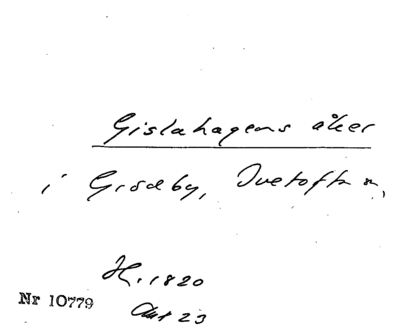 Gislahagens åker
i Grödby, Ivetofta sn,
H. 1820
Akt 23
Nr 10779